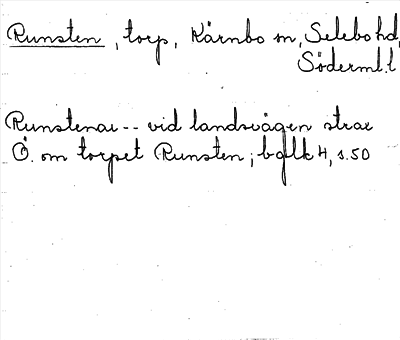 Runsten, torp, Kärnbo sn, Selebo hd,
Söderml. l
Runstenar -- vid landsvägen strax
Ö. om torpet Runsten; bglk H, s. 50